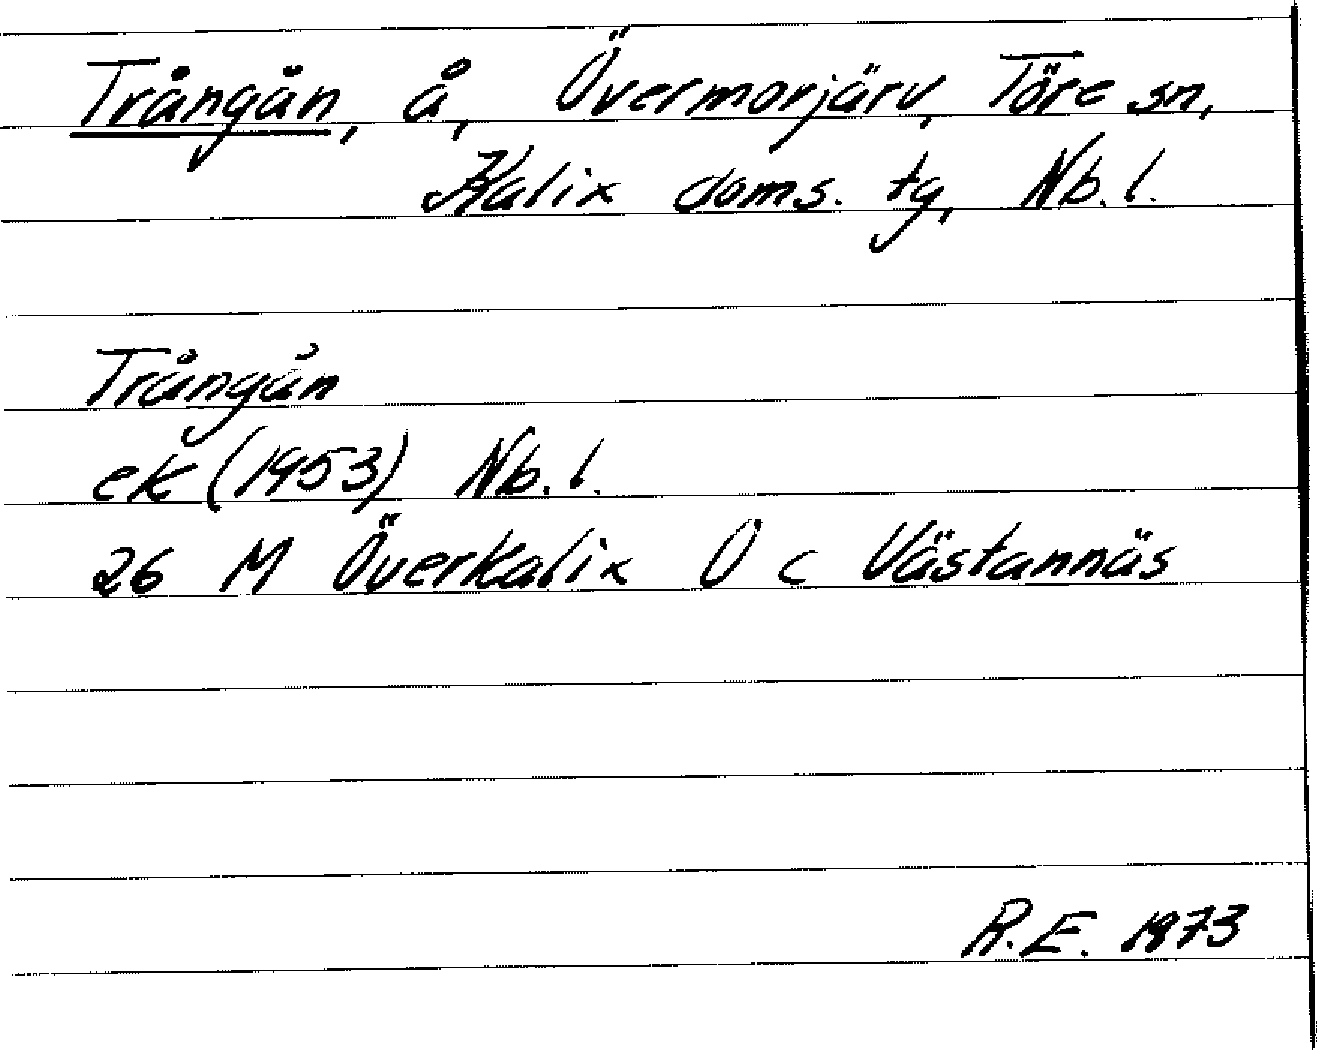 Trångån, å, Övermorjärv, Töre sn,
Kalix doms. tg, Nb. l.
Trångån
ek (1953) Nb. l.
26 M Överkalix Ö c Västannäs
R.E. 1973